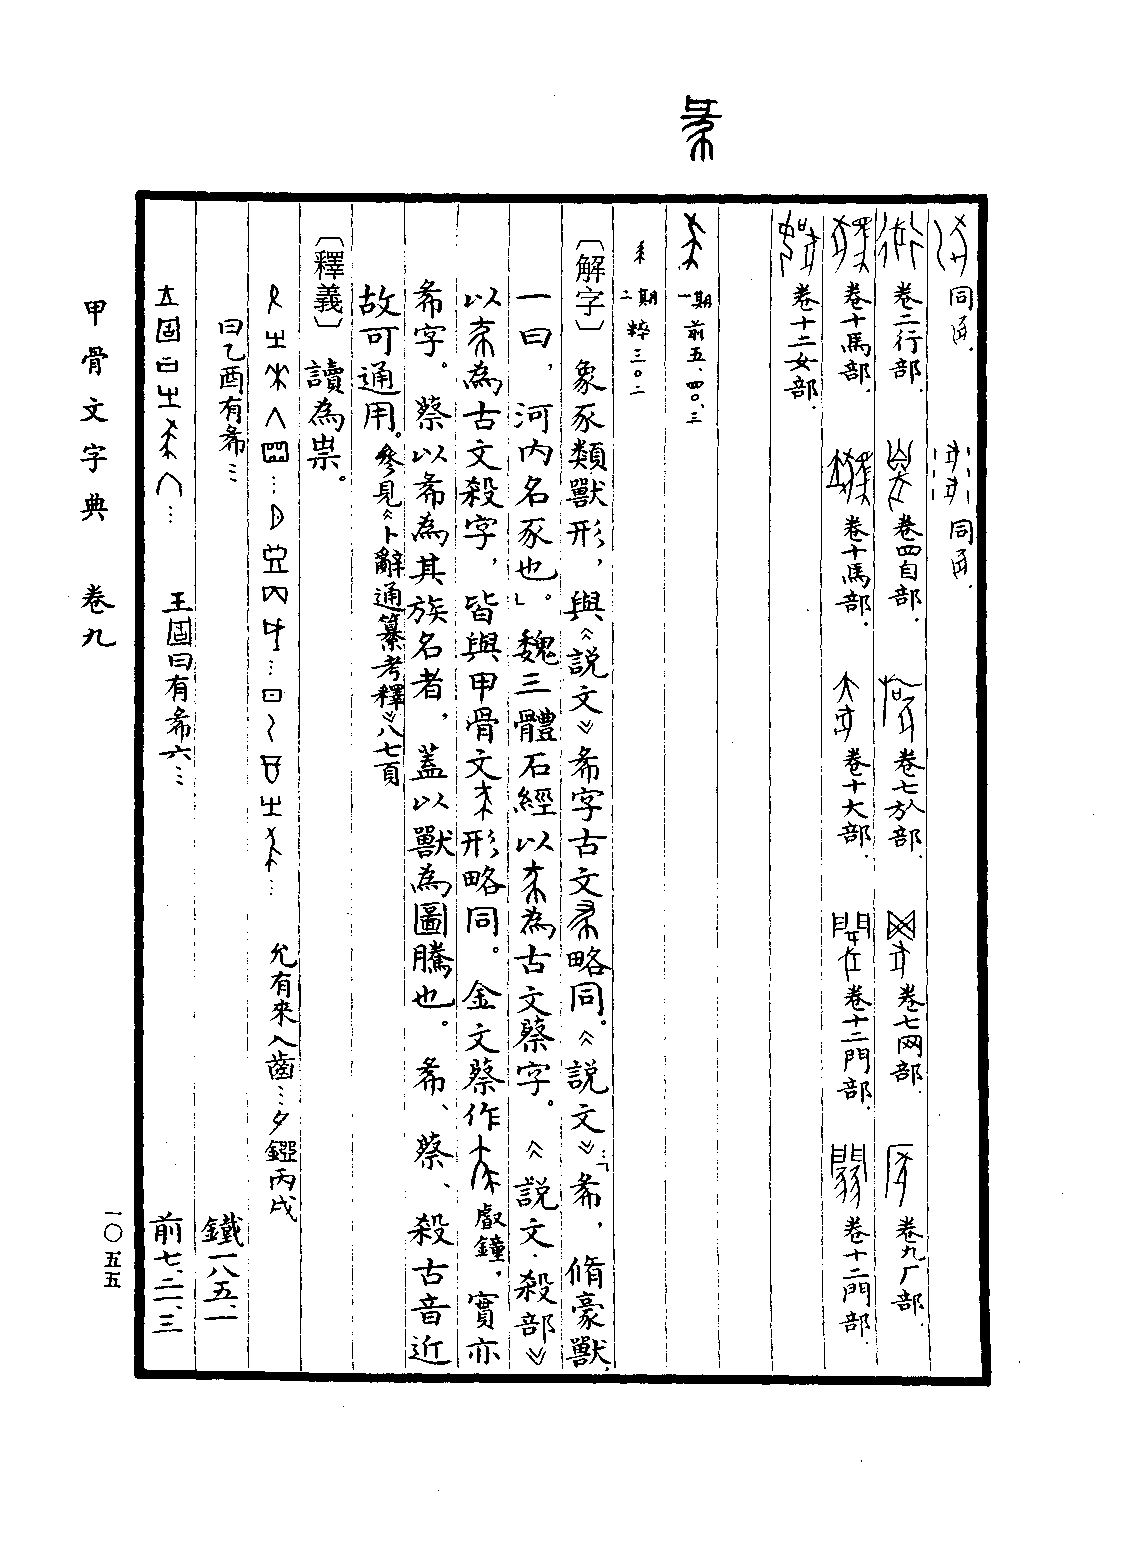 同豕. 同豕.
卷二行部. 卷四自部. 卷七㫃部. 卷七网部. 卷九厂部.
卷十馬部. 卷十馬部. 卷十大部. 卷十二門部. 卷十二門部.
卷十二女部.
一期 前五.四〇.三
二期 粹三〇二
〔解字〕象豕類獸形，與《說文》㣇字古文略同。《說文》：「㣇，脩豪獸。
一曰，河內名豕也。」魏三體石經以為古文蔡字。《說文·殺部》
以為古文殺字，皆與甲骨文形略同。金文蔡作 㲋鐘，實亦
㣇字。蔡以㣇為其族名者，蓋以獸為圖騰也。㣇、蔡、殺古音近
故可通用。參見《卜辭通纂考釋》八七頁
〔釋義〕讀為祟。
允有來入齒…夕𨣁丙戌
曰乙酉有㣇… 鐵一八五.一
王固曰有㣇六… 前七.二一.三
甲骨文字典 卷九
一〇五五